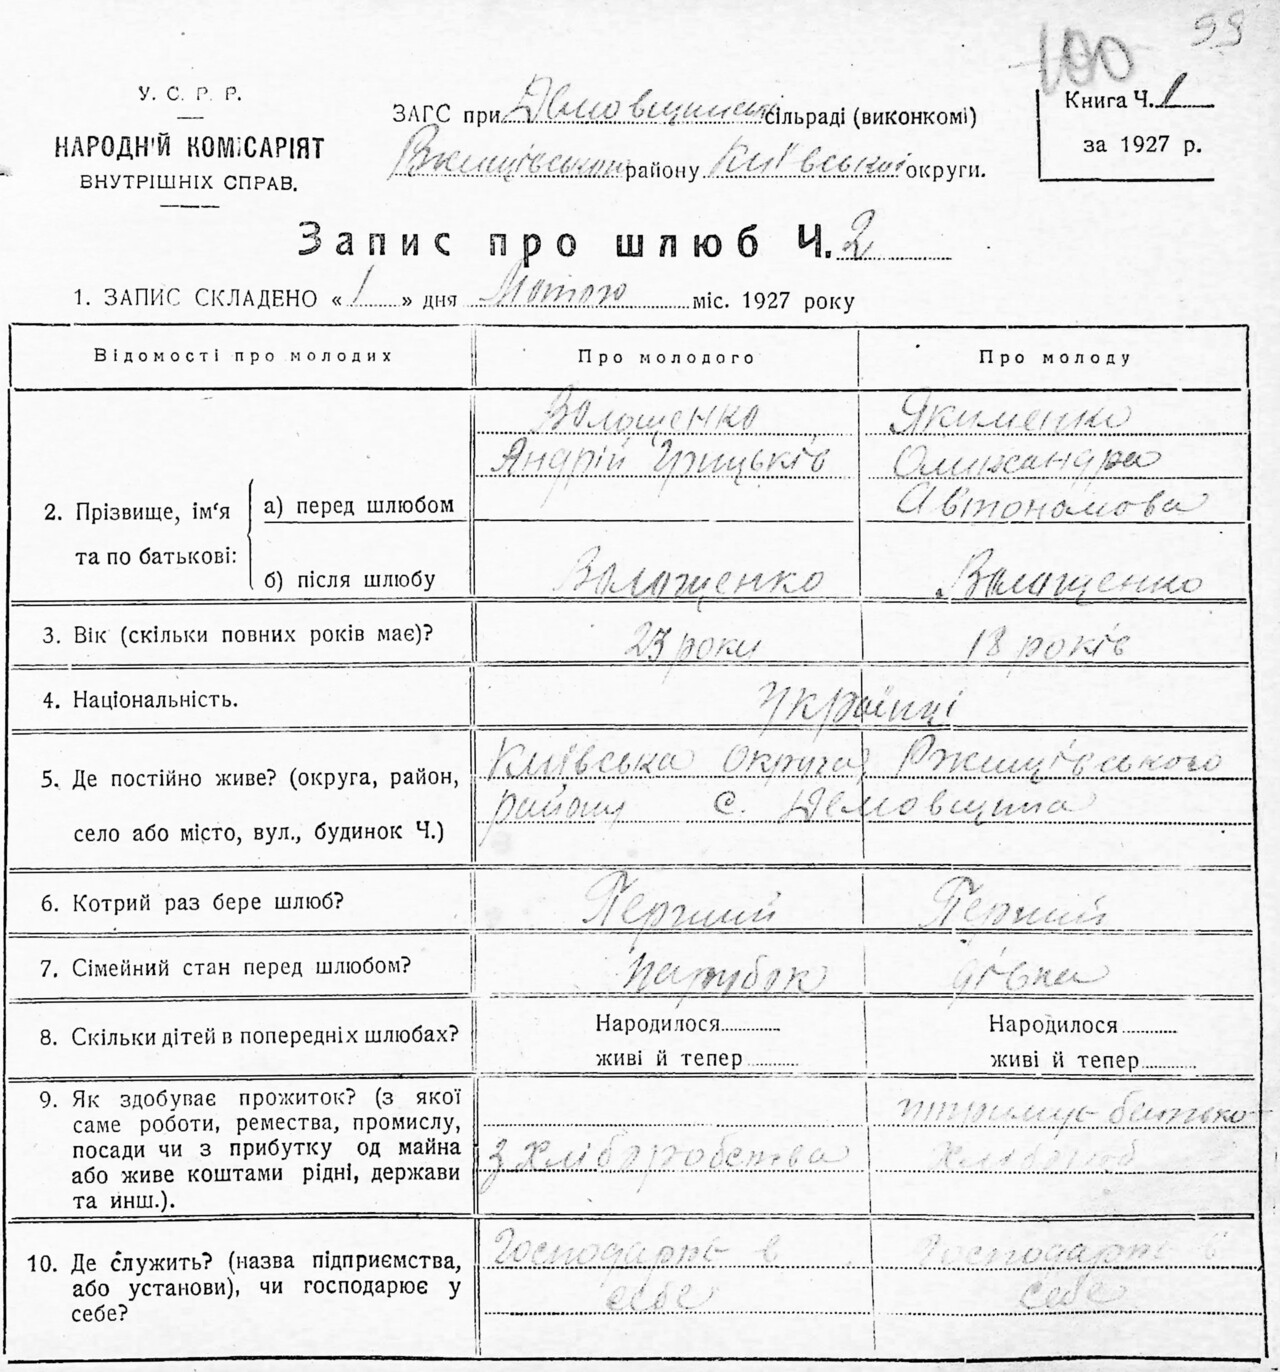 99
100
У. С. Р. Р.
НАРОДНІЙ КОМІСАРІЯТ
ВНУТРІШНІХ СПРАВ.
ЗАГС при Демовщинскі сільраді (виконкомі)
Ржищівським району Київської округи.
Книга Ч. 1
за 1927 р.
Запис про шлюб Ч. 2
1. ЗАПИС СКЛАДЕНО « 1 » дня Лютого міс. 1927 року
Відомості про молодих Про молодого Про молоду
Волощенко Якименко
Андрій Грицьків Олександра
Автономова
2. Прізвище, ім'я та по батькові:
а) перед шлюбом
б) після шлюбу Волощенко Волощенко
3. Вік (скільки повних років має)? 23 роки 18 років
4. Національність. Українці
5. Де постійно живе? (округа, район, Київська округа Ржищівського
село або місто, вул., будинок Ч.) району с. Демовщина
6. Котрий раз бере шлюб? Перший Перший
7. Сімейний стан перед шлюбом? парубок дівка
8. Скільки дітей в попередніх шлюбах? Народилося Народилося
живі й тепер живі й тепер
9. Як здобуває прожиток? (з якої
саме роботи, ремества, промислу, батько
посади чи з прибутку од майна з Хліборобства
або живе коштами рідні, держави
та инш.).
10. Де служить? (назва підприємства, Господарює в Господарює в
або установи), чи господарює у себе себе
себе?